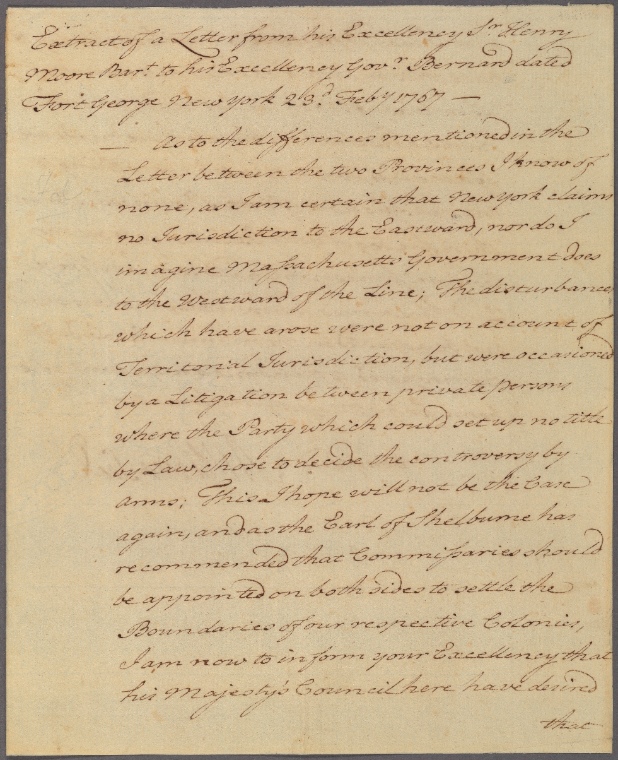 Extract of a Letter from his Excellency Sr. Henry
Moore Bart. to his Excellency Govr. Bernard dated
Fort George New York 23d. Feby 1767 —
— As to the differences mentioned in the
Letter between the two Provinces I know of
none, as I am certain that New York claims
no Jurisdiction to the Eastward, nor do I
imagine Massachusetts Government does
to the Westward of the Line; The disturbances
which have arose were not on account of
Territorial Jurisdiction, but were occasioned
by a Litigation between private persons
where the Party which could set up no title
by Law, chose to decide the controversy by
arms; This I hope will not be the Case
again, and as the Earl of Shelburne has
recommended that Commissaries should
be appointed on both sides to settle the
Boundaries of our respective Colonies,
I am now to inform your Excellency that
his Majesty's Council here have desired
that